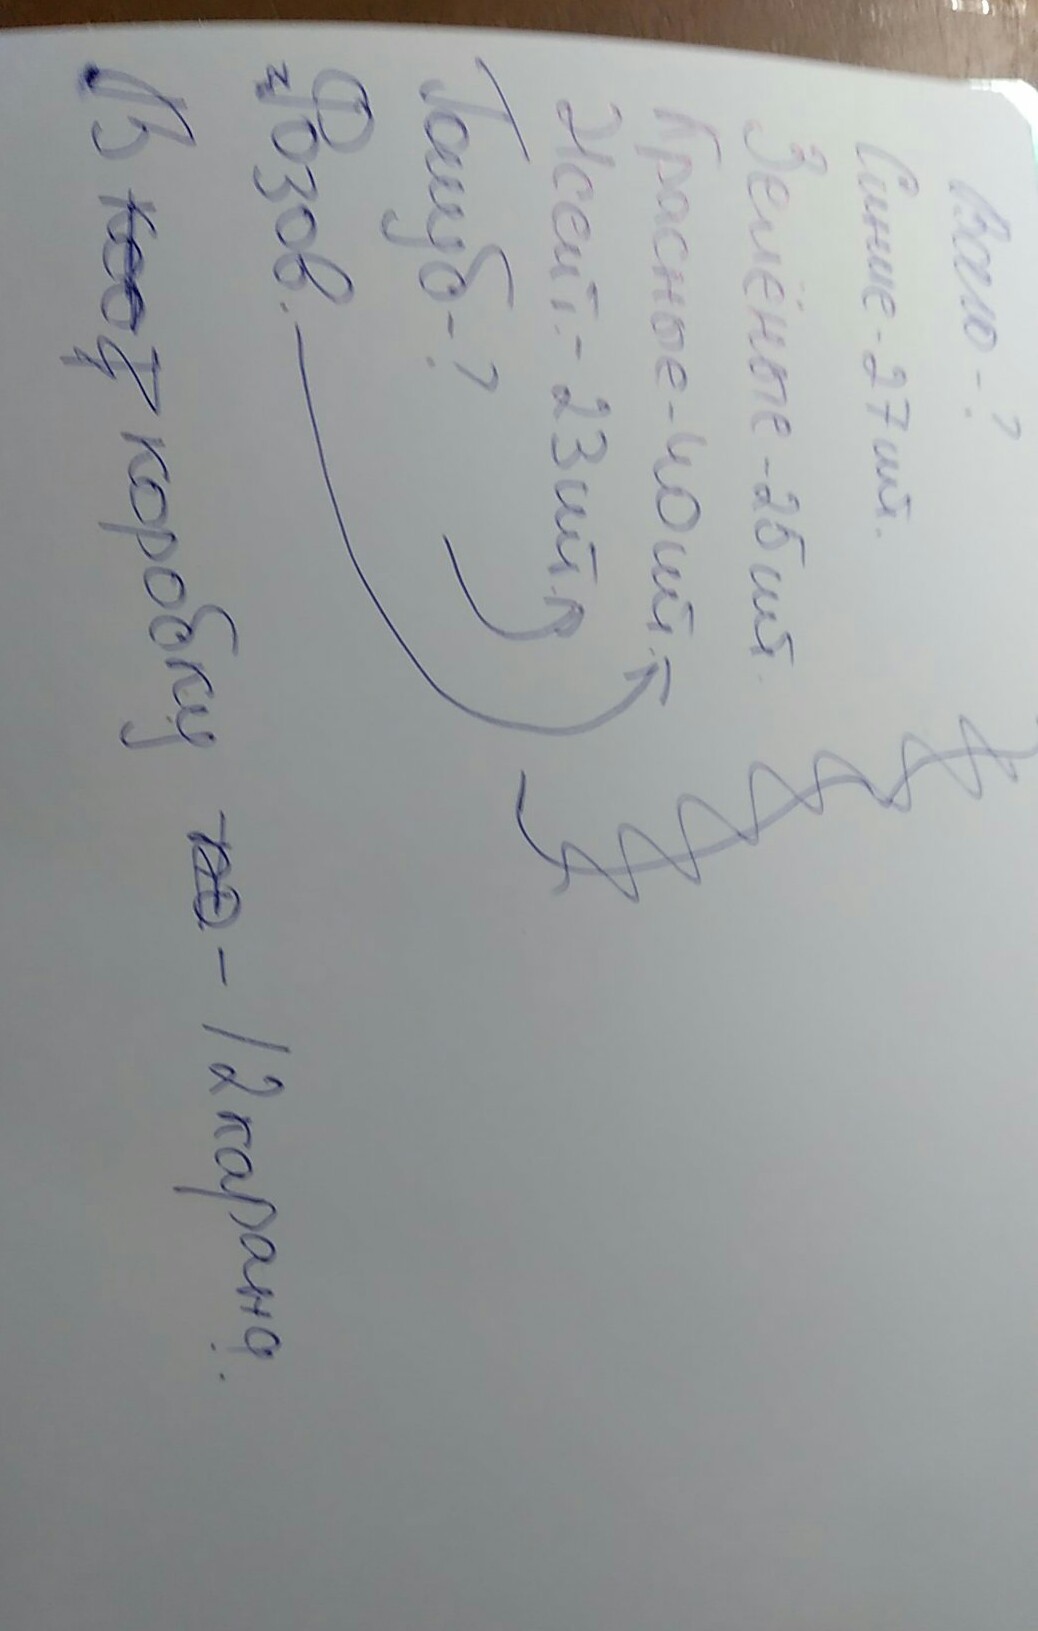 Всего - ?
Синие - 27 шт.
Зелёные - 25 шт.
Красные - 40 шт.
Желт. - 23 шт.
Голуб - ?
Розов.
В коробку - 12 каранд.